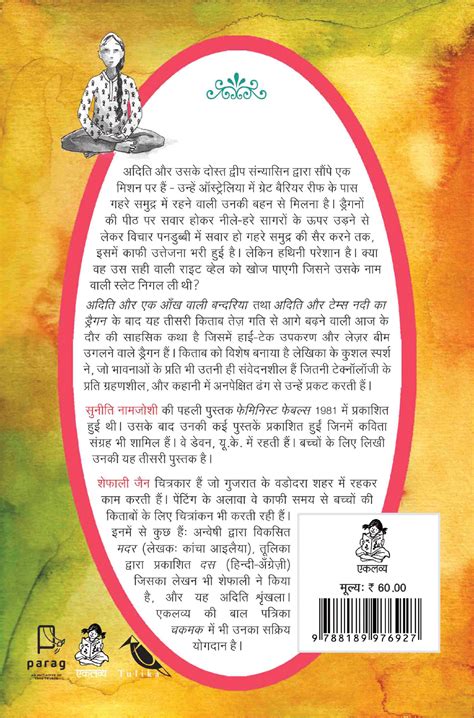 अदिति और उसके दोस्त द्वीप संन्यासिन द्वारा सौंपे एक
मिशन पर हैं - उन्हें ऑस्ट्रेलिया में ग्रेट बैरियर रीफ के पास
गहरे समुद्र में रहने वाली उनकी बहन से मिलना है। ड्रैगनों
की पीठ पर सवार होकर नीले-हरे सागरों के ऊपर उड़ने से
लेकर विचार पनडुब्बी में सवार हो गहरे समुद्र की सैर करने तक,
इसमें काफी उत्तेजना भरी हुई है। लेकिन हथिनी परेशान है। क्या
वह उस सही वाली राइट व्हेल को खोज पाएगी जिसने उसके नाम
वाली स्लेट निगल ली थी?
अदिति और एक आँख वाली बन्दरिया तथा अदिति और टेम्स नदी का
ड्रैगन के बाद यह तीसरी किताब तेज़ गति से आगे बढ़ने वाली आज के
दौर की साहसिक कथा है जिसमें हाई-टेक उपकरण और लेज़र बीम
उगलने वाले ड्रैगन हैं। किताब को विशेष बनाया है लेखिका के कुशल स्पर्श
ने, जो भावनाओं के प्रति भी उतनी ही संवेदनशील हैं जितनी टेक्नॉलॉजी के
प्रति ग्रहणशील, और कहानी में अनपेक्षित ढंग से उन्हें प्रकट करती हैं।
सुनीति नामजोशी की पहली पुस्तक फेमिनिस्ट फेबल्स 1981 में प्रकाशित
हुई थी। उसके बाद उनकी कई पुस्तकें प्रकाशित हुईं जिनमें कविता
संग्रह भी शामिल हैं। वे डेवन, यू.के. में रहती हैं। बच्चों के लिए लिखी
उनकी यह तीसरी पुस्तक है।
शेफाली जैन चित्रकार हैं जो गुजरात के वडोदरा शहर में रहकर
काम करती हैं। पेंटिंग के अलावा वे काफी समय से बच्चों की
किताबों के लिए चित्रांकन भी करती रही हैं।
इनमें से कुछ हैं: अन्वेषी द्वारा विकसित
मदर (लेखक: कांचा आइलैया), तूलिका
द्वारा प्रकाशित दस (हिन्दी-अँग्रेज़ी)
जिसका लेखन भी शेफाली ने किया
है, और यह अदिति शृंखला।
एकलव्य की बाल पत्रिका
चकमक में भी उनका सक्रिय
योगदान है।
एकलव्य
मूल्य: ₹ 60.00
9 788189 976927
parag
एकलव्य
Tulika